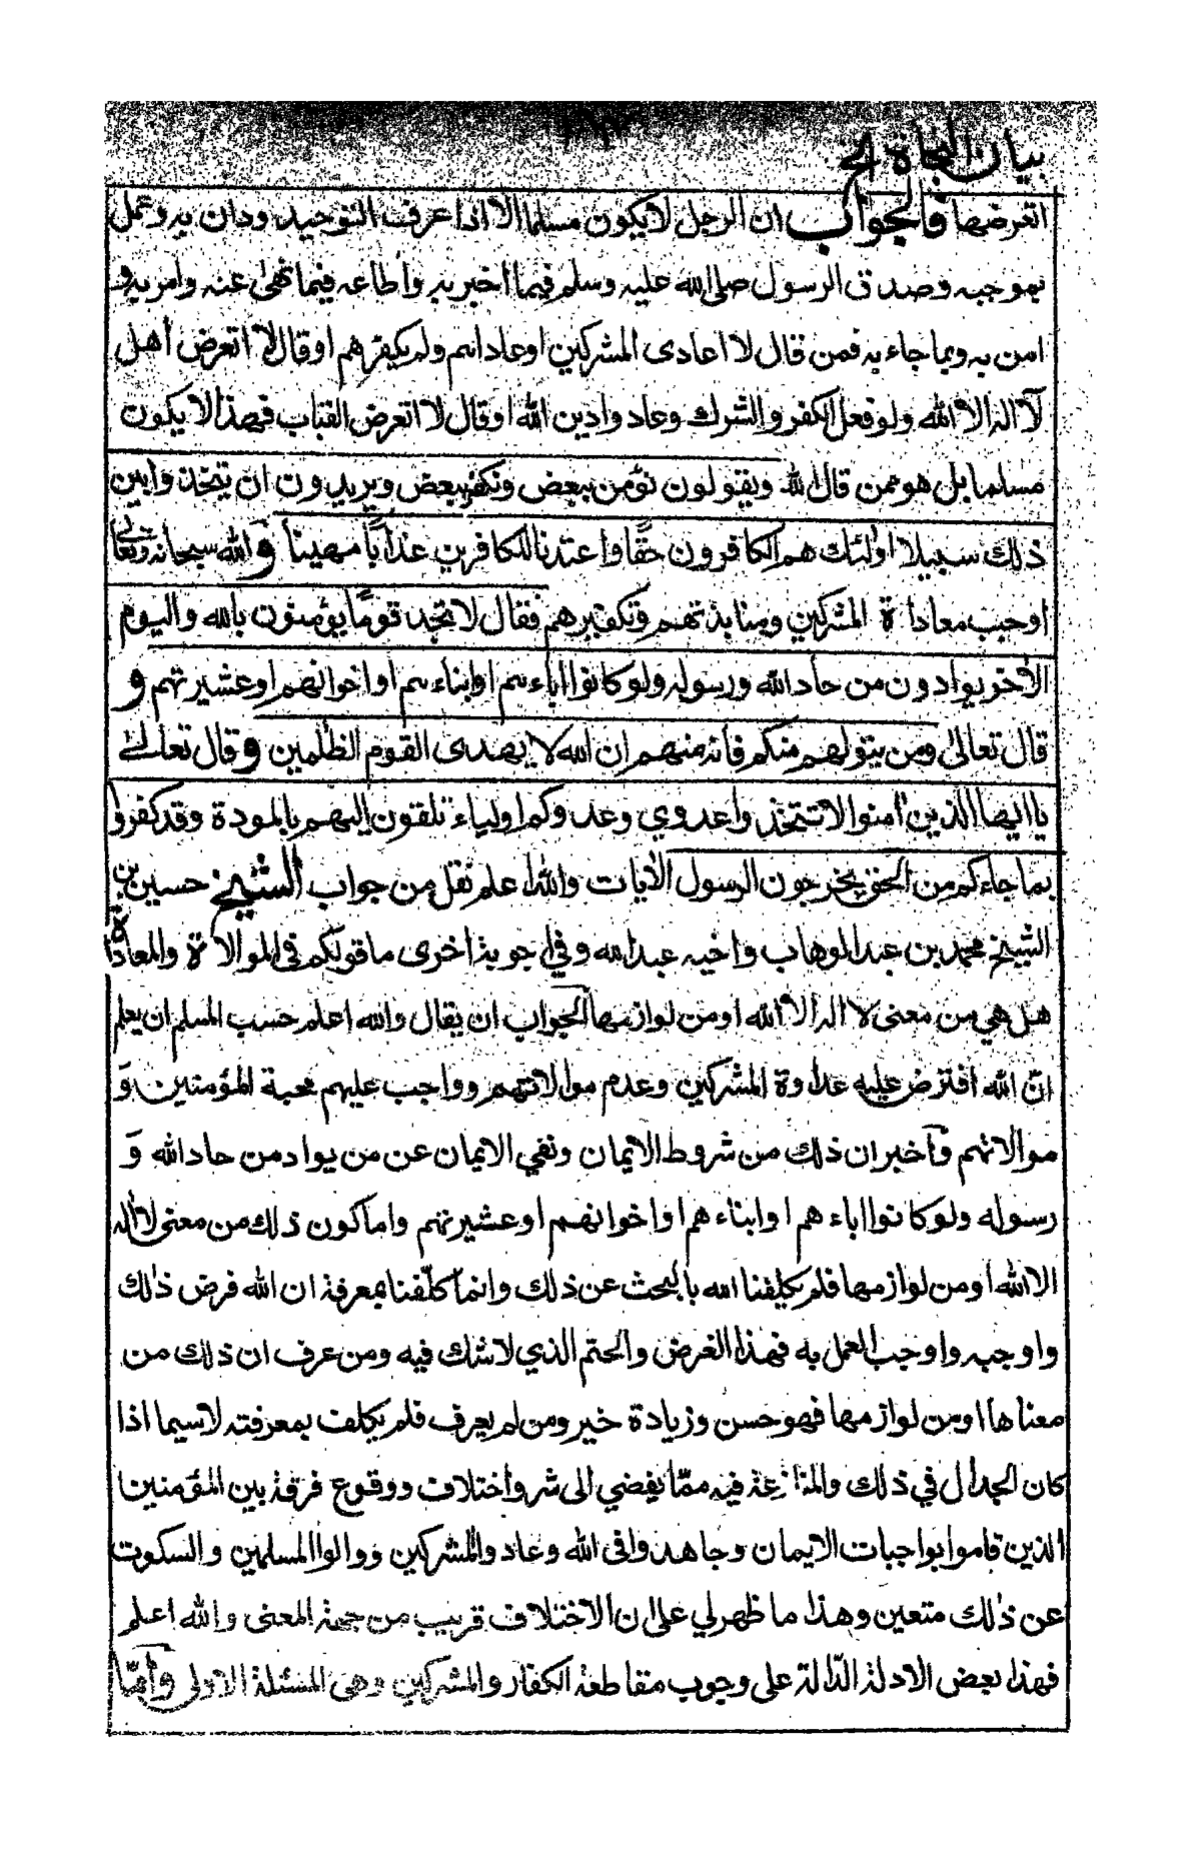 بيان النجاة الخ
اتعرضها فالجواب ان الرجل لا يكون مسلما الا اذا عرف التوحيد ودان به وعمل
بموجبه وصدق الرسول صلى الله عليه وسلم فيما اخبر به واطاعه فيما نهى عنه وامر به و
امن به وبما جاء به فمن قال لا اعادى المشركين او عاداهم ولم يكفرهم او قال لا اتعرض اهل
لا اله الا الله ولو فعل الكفر والشرك وعادوا دين الله او قال لا اتعرض القباب فهذا لا يكون
مسلما بل هو ممن قال الله ويقولون نؤمن ببعض ونكفر ببعض ويريدون ان يتخذوا بين
ذلك سبيلا اولئك هم الكافرون حقًا واعتدنا للكافرين عذابًا مهينا والله سبحانه وتعالى
اوجب معاداة المشركين ومنابذتهم وتكفيرهم فقال لا تجد قومًا يؤمنون بالله واليوم
الآخر يوادون من حاد الله ورسوله ولو كانوا اباءهم او ابناءهم او اخوانهم او عشيرتهم و
قال تعالى ومن يتولهم منكم فانه منهم ان الله لا يهدى القوم الظلمين وقال تعالى
يا ايها الذين امنوا لا تتخذوا عدوي وعدوكم اولياء تلقون اليهم بالمودة وقد كفروا
بما جاءكم من الحق يخرجون الرسول الآيات والله اعلم نقل من جواب الشيخ حسين بن
الشيخ محمد بن عبد الوهاب واخيه عبد الله وفى اجوبة اخرى ما قولكم فى الموالاة والمعاداة
هل هي من معنى لا اله الا الله او من لوازمها الجواب ان يقال والله اعلم حسب المسلم ان يعلم
انّ الله افترض عليه عداوة المشركين وعدم موالاتهم وواجب عليهم محبة المؤمنين وَ
موالاتهم وأخبر ان ذلك من شروط الايمان ونفي الايمان عن من يواد من حاد الله وَ
رسوله ولو كانوا اباء هم او ابناء هم او اخوانهم او عشيرتهم واما كون ذلك من معنى لا اله
الا الله او من لوازمها فلم يكلفنا الله بالبحث عن ذلك وانما كلّفنا بمعرفة ان الله فرض ذلك
واوجبه واوجب العمل به فهذا الفرض والحتم الذي لا شك فيه ومن عرف ان ذلك من
معناها او من لوازمها فهو حسن وزيادة خير ومن لم يعرف فلم يكلف بمعرفته لا سيما اذا
كان الجدال في ذلك والمنازعة فيه ممّا يفضي الى شر واختلاف ووقوع فرقة بين المؤمنين
الذين قاموا بواجبات الايمان وجاهدوا فى الله وعادوا المشركين ووالوا المسلمين والسكوت
عن ذلك متعين وهذا ما ظهر لي على ان الاختلاف قريب من جهة المعنى والله اعلم
فهذا بعض الادلة الدّالة على وجوب مقاطعة الكفار والمشركين وهى المسئلة الاولى وأمّا